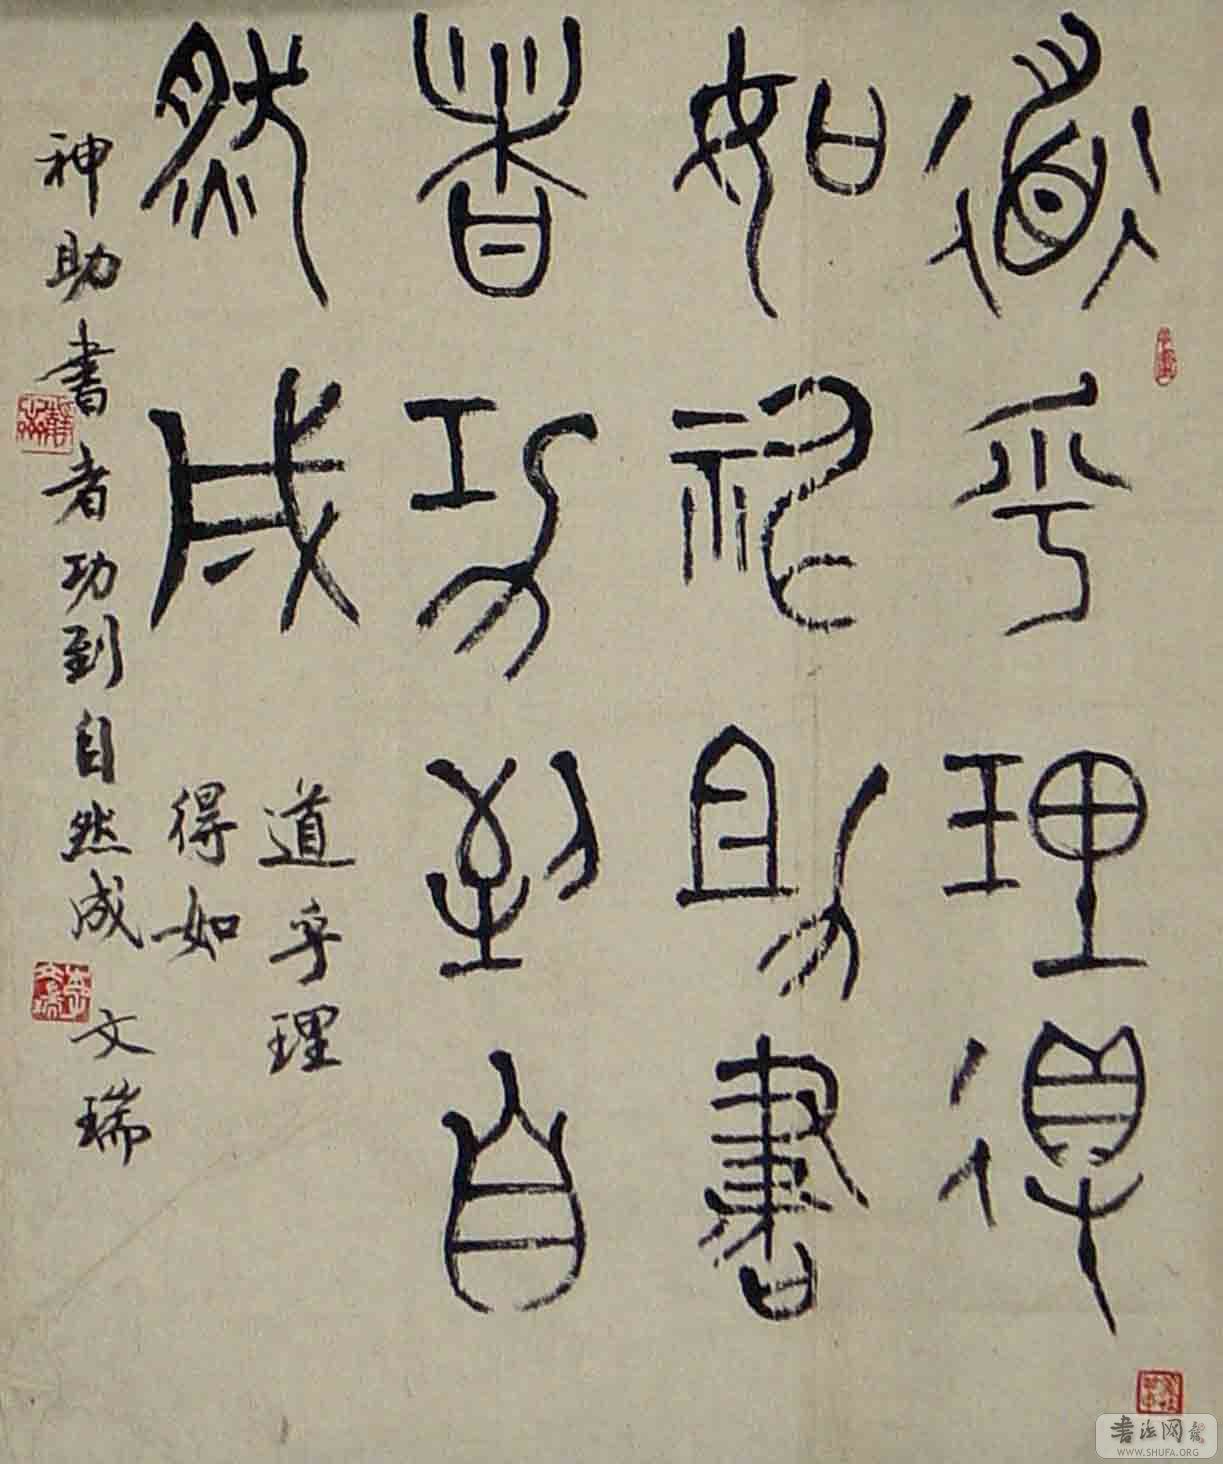 道乎理得
如神助書
者功到自
然成
道乎理
得如
神助書者功到自然成
文瑞
書法网
WWW.SHUFA.ORG